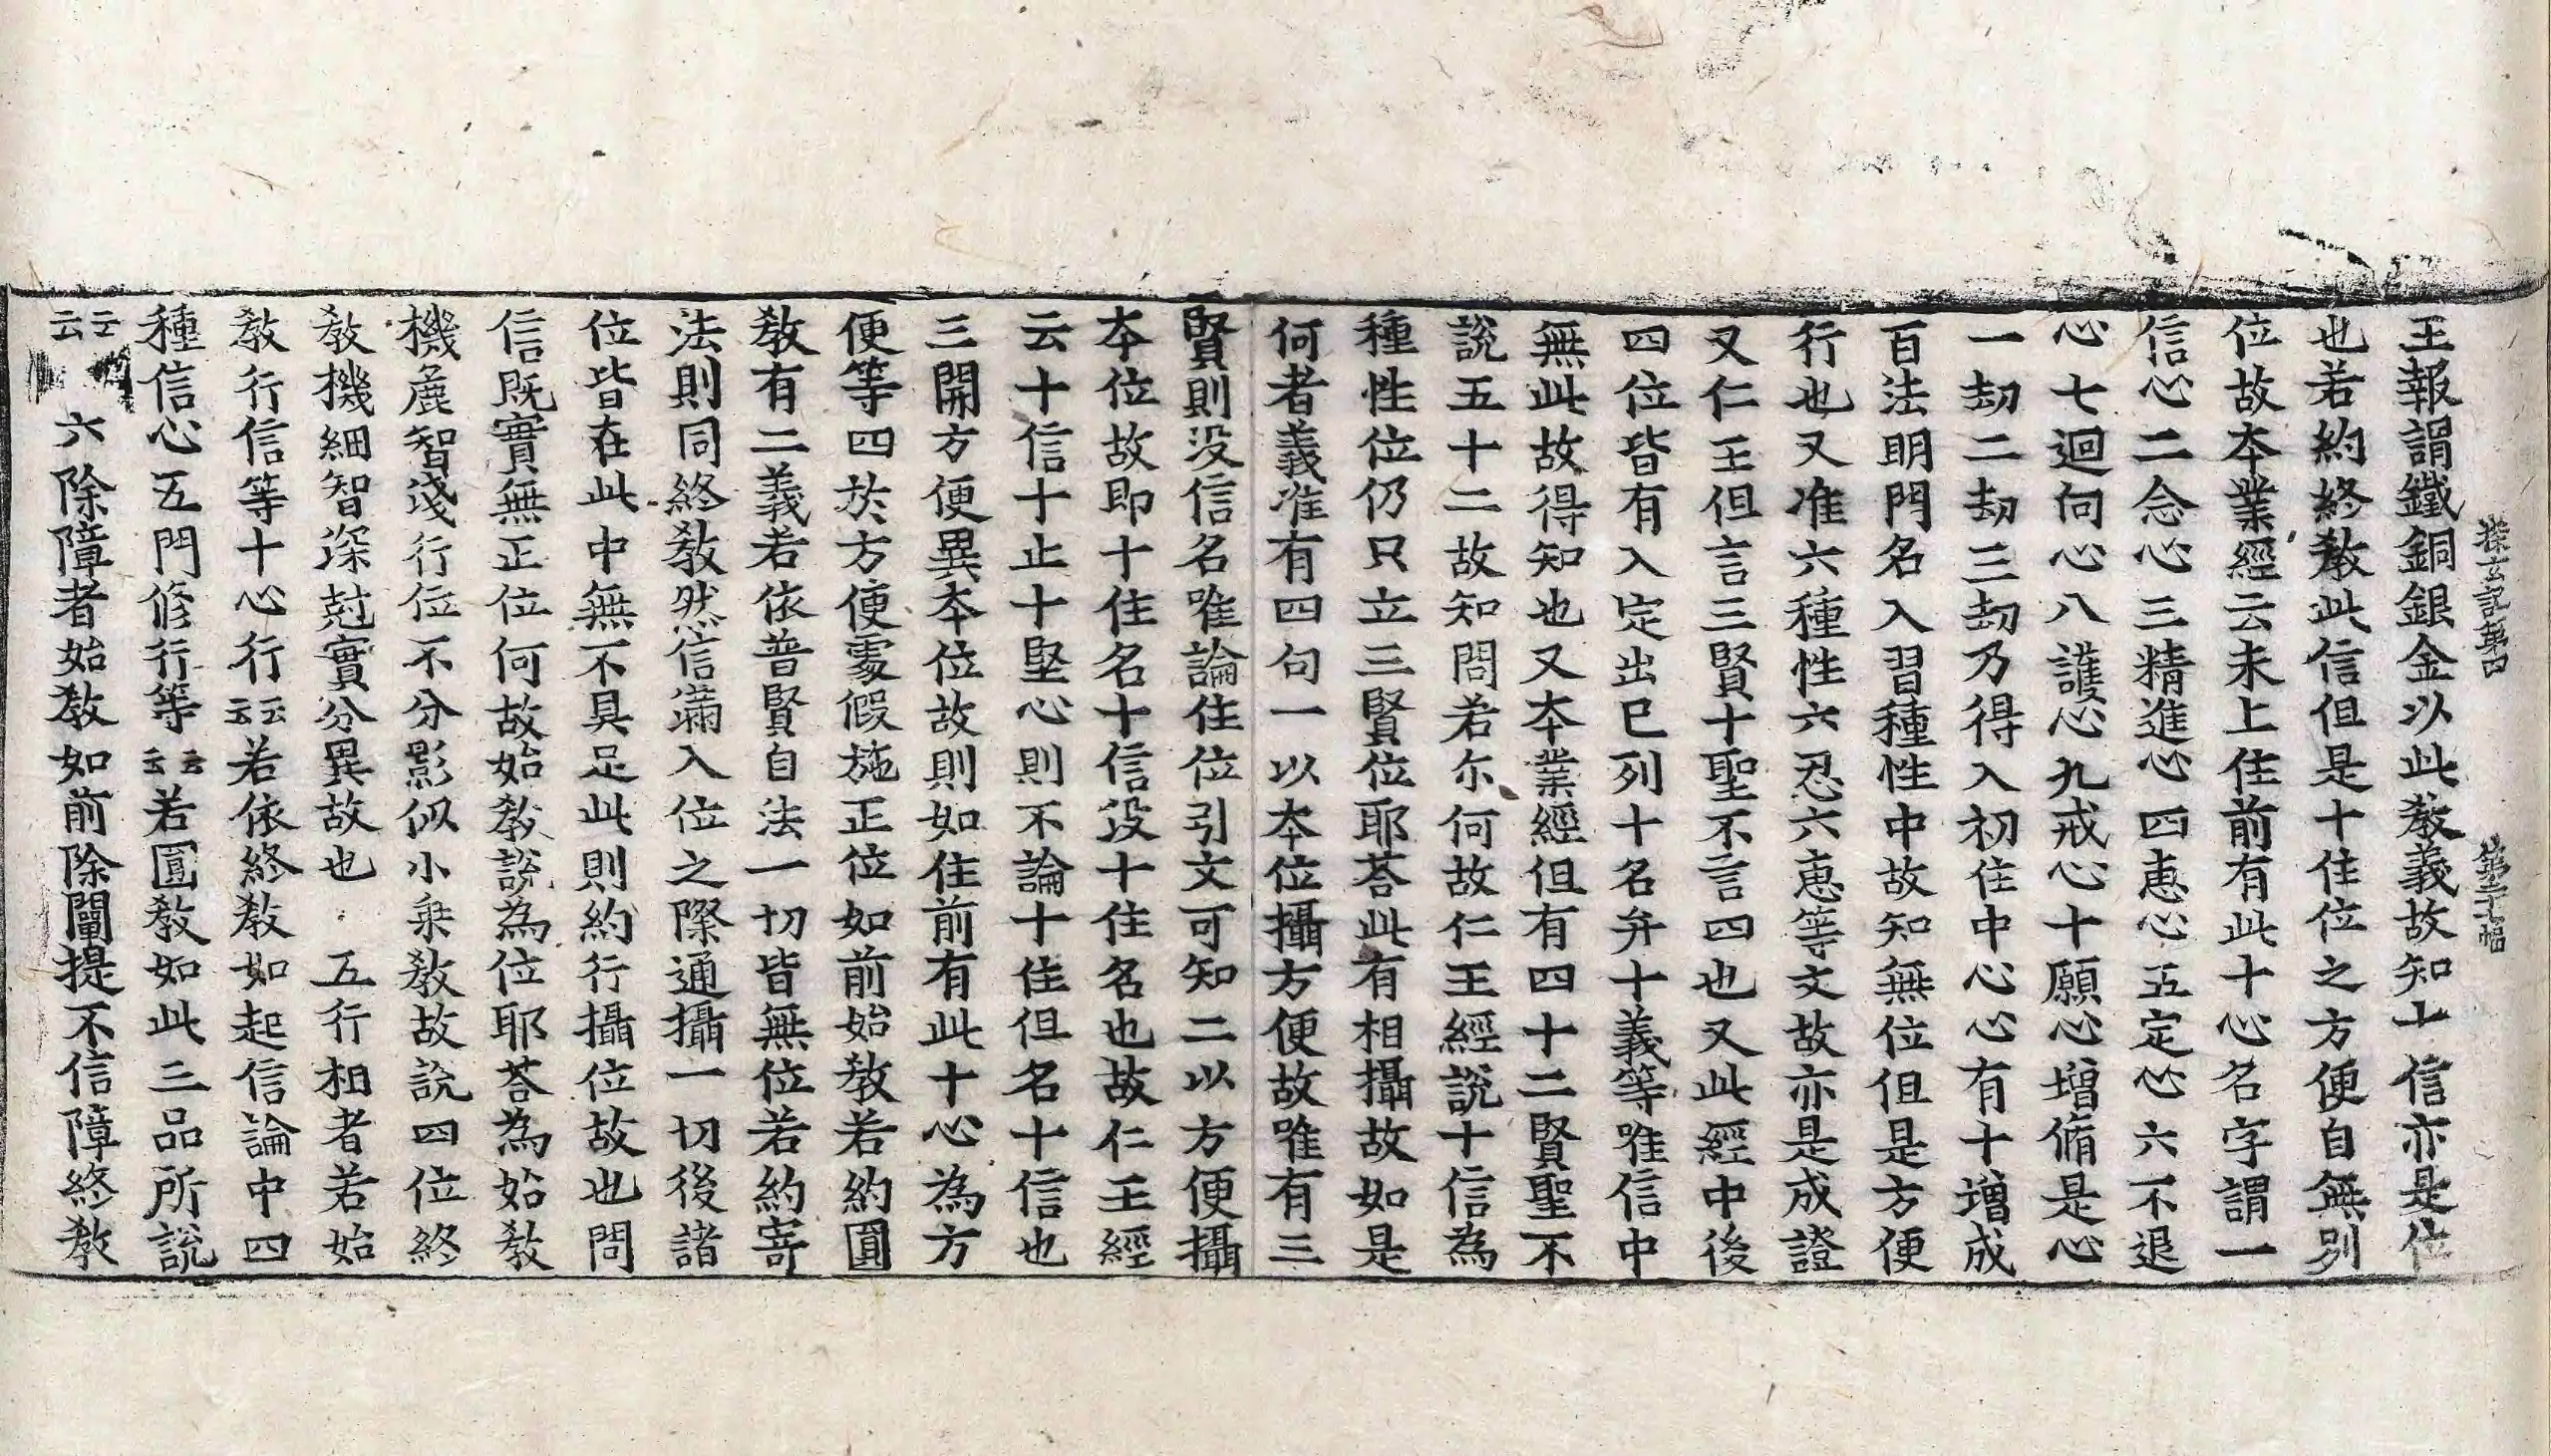 探玄記第四 第二十七幅
王報謂鐵銅銀金以此教義故知十信亦是位
也若約終教此信但是十住位之方便自無別
位故本業經云未上住前有此十心名字謂一
信心二念心三精進心四惠心五定心六不退
心七迴向心八護心九戒心十願心增脩是心
一劫二劫三劫乃得入初住中心心有十增成
百法明門名入習種性中故知無位但是方便
行也又准六種性六忍六惠等文故亦是成證
又仁王但言三賢十聖不言四也又此經中後
四位皆有入定出已列十名弁十義等唯信中
無此故得知也又本業經但有四十二賢聖不
說五十二故知問若尓何故仁王經說十信為
種性位仍只立三賢位耶荅此有相攝故如是
何者義准有四句一以本位攝方便故唯有三
賢則没信名唯論住位引文可知二以方便攝
本位故即十住名十信没十住名也故仁王經
云十信十止十堅心則不論十住但名十信也
三開方便異本位故則如住前有此十心為方
便等四於方便處假施正位如前始教若約圓
教有二義若依普賢自法一切皆無位若約寄
法則同終教然信滿入位之際通攝一切後諸
位皆在此中無不具足此則約行攝位故也問
信既實無正位何故始教說為位耶荅為始教
機麁智淺行位不分影似小乗教故說四位終
教機細智深尅實分異故也 五行相者若始
教行信等十心行云云若依終教如起信論中四
種信心五門修行等云云若圓教如此三品所說
云云 六除障者始教如前除闡提不信障終教